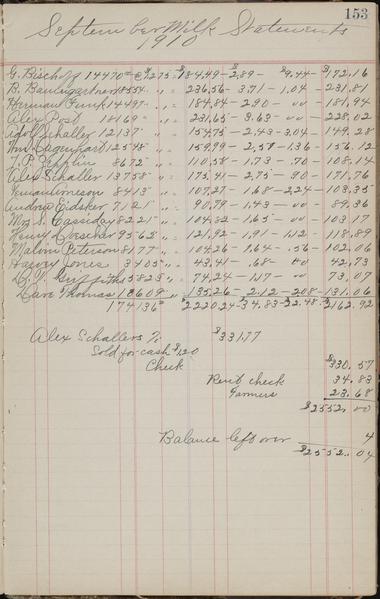 153
September Milk Statements
1910
G. Bischoff 14470# @ $1.275 - $184.49 - 2.89 - $9.44 - $172.16
B. Baumgartner 18554 " " - 236.56 - 3.71 - 1.04 - 231.81
Herman Funk 14497 - " " - 184.84 - 2.90 - 00 - 181.94
Alex Post 18169 " " - 231.65 - 3.63 - 00 - 228.02
Adolf Schaller 12137 " " - 154.75 - 2.43 - 3.04 - 149.28
12548 " " - 159.99 - 2.51 - 1.36 - 156.12
T. P. 8672 " " - 110.58 - 1.73 - .70 - 108.14
Alex Schaller 13758 " " - 175.41 - 2.75 - 90 - 171.76
8413 " " - 107.27 - 1.68 - 2.24 - 103.35
Andrew 7121 " " - 90.79 - 1.43 - 00 - 89.36
Wm S. Cassiday 8221 " " - 104.82 - 1.65 - 00 - 103.17
9562 " " - 121.92 - 1.91 - 1.12 - 118.89
Malvin Peterson 8177 " " - 104.26 - 1.64 - .56 - 102.06
Harvey Jones 3405 " " - 43.41 - .68 - 00 - 42.73
D. V. Griffiths 5823 " " - 74.24 - 1.17 - 00 - 73.07
Dave Thomas 10609 " - 135.26 - 2.12 - 2.08 - 131.06
174136# $2220.24 - $34.83 - $22.48 - $2162.92
Alex Schallers % $331.77
Sold for cash $1.20
Check $330.57
Rent check 34.83
Farmers 23.68
$2552.00
Balance left over 4
$2552.04